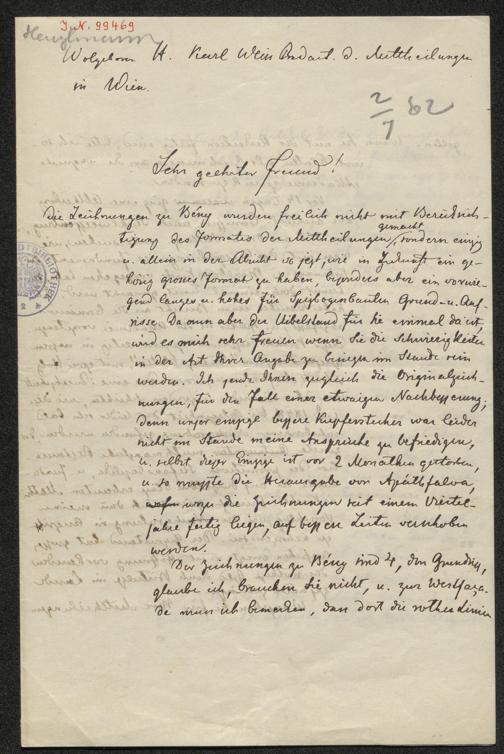 I.N. 99469
Henszlmann
Wolgeborn H. Karl Weis Redact. d. Mittheilungen
in Wien.
2/7 62
Sehr geehrter Freund!
Die Zeichnungen zu Bény wurden freilich nicht mit Berücksich-
gemacht
tigung des Formates der Mittheilungen, sondern einzig
u. allein in der Absicht so jetzt, wie in Zukunft ein ge-
hörig grosses Format zu haben, besonders aber ein vorwie-
gend langes u. hohes für Spitzbogenbauten Grund- u. Auf-
risse. Da nun aber der Uibelstand für hie einmal da ist,
wird es mich sehr freuen wenn Sie die Schwierigkeiten
in der Art Ihrer Angabe zu besiegen im Stande sein
werden. Ich sende Ihnen zugleich die Originalzeich-
nungen, für den Fall einer etwaigen Nachbesserung;
denn unser einzige bessere Kupferstecher war leider
nicht im Stande meine Ansprüche zu befriedigen,
u. selbst dieser Einzige ist vor 2 Monathen gestorben,
u. so musste die Herausgabe von Apáthfalva,
wozu die Zeichnungen seit einem Viertel-
jahre fertig liegen, auf bessere Zeiten verschoben
werden.
Der Zeichnungen zu Bény sind 4, den Grundriss,
glaube ich, brauchen Sie nicht, u. zur Westfaça-
de muss ich bemerken, dass dort die rothen Linien